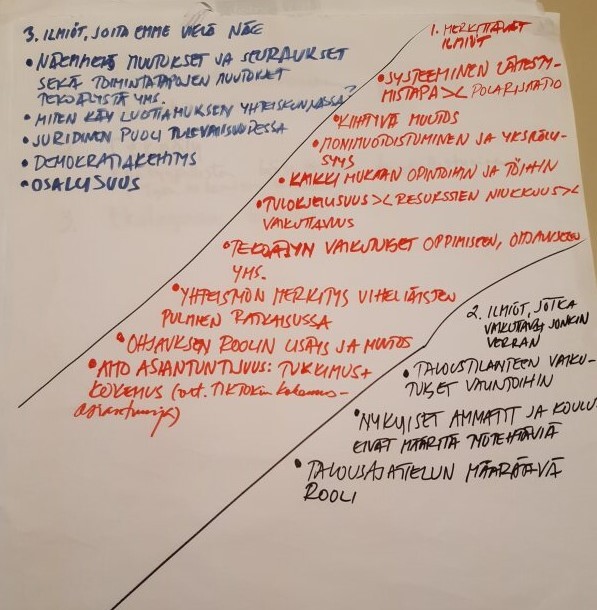 3. ILMIÖT, JOITA EMME VIELÄ NÄE
• NÄEMMEKÖ MUUTOKSET JA SEURAUKSET
SEKÄ TOIMINTATAPOJEN MUUTOKSET
TEKOÄLYSTÄ YMS.
• MITEN KÄY LUOTTAMUKSEN YHTEISKUNNASSA?
• JURIDINEN PUOLI TULEVAISUUDESSA
• DEMOKRATIAKEHITYS
• OSALLISUUS
1. MERKITTÄVÄT
ILMIÖT
• SYSTEEMINEN LÄHESTY-
MISTAPA >< POLARISAATIO
• KIIHTYVÄ MUUTOS
• MONIMUOTOISTUMINEN JA YKSILÖLLI-
SYYS
• KAIKKI MUKAAN OPINTOIHIN JA TÖIHIN
• TULOKSELLISUUS >< RESURSSIEN NIUKKUUS ><
VAIKUTTAVUUS
• TEKOÄLYN VAIKUTUKSET OPPIMISEEN, OHJAUKSEEN
YMS.
• YHTEISTYÖN MERKITYS VIHELIÄISTEN
PULMIEN RATKAISUSSA
• OHJAUKSEN ROOLIN LISÄYS JA MUUTOS
• AITO ASIANTUNTIJUUS: TUTKIMUS +
KOKEMUS (vrt. TIKTOKIN kokemus-
asiantuntija)
2. ILMIÖT, JOTKA
VAIKUTTAVAT JONKIN
VERRAN
• TALOUSTILANTEEN VAIKU-
TUKSET VALINTOIHIN
• NYKYISET AMMATIT JA KOULU-
EIVÄT MÄÄRITÄ TYÖTEHTÄVIÄ
• TALOUSAJATTELUN MÄÄRÄÄVÄ
ROOLI